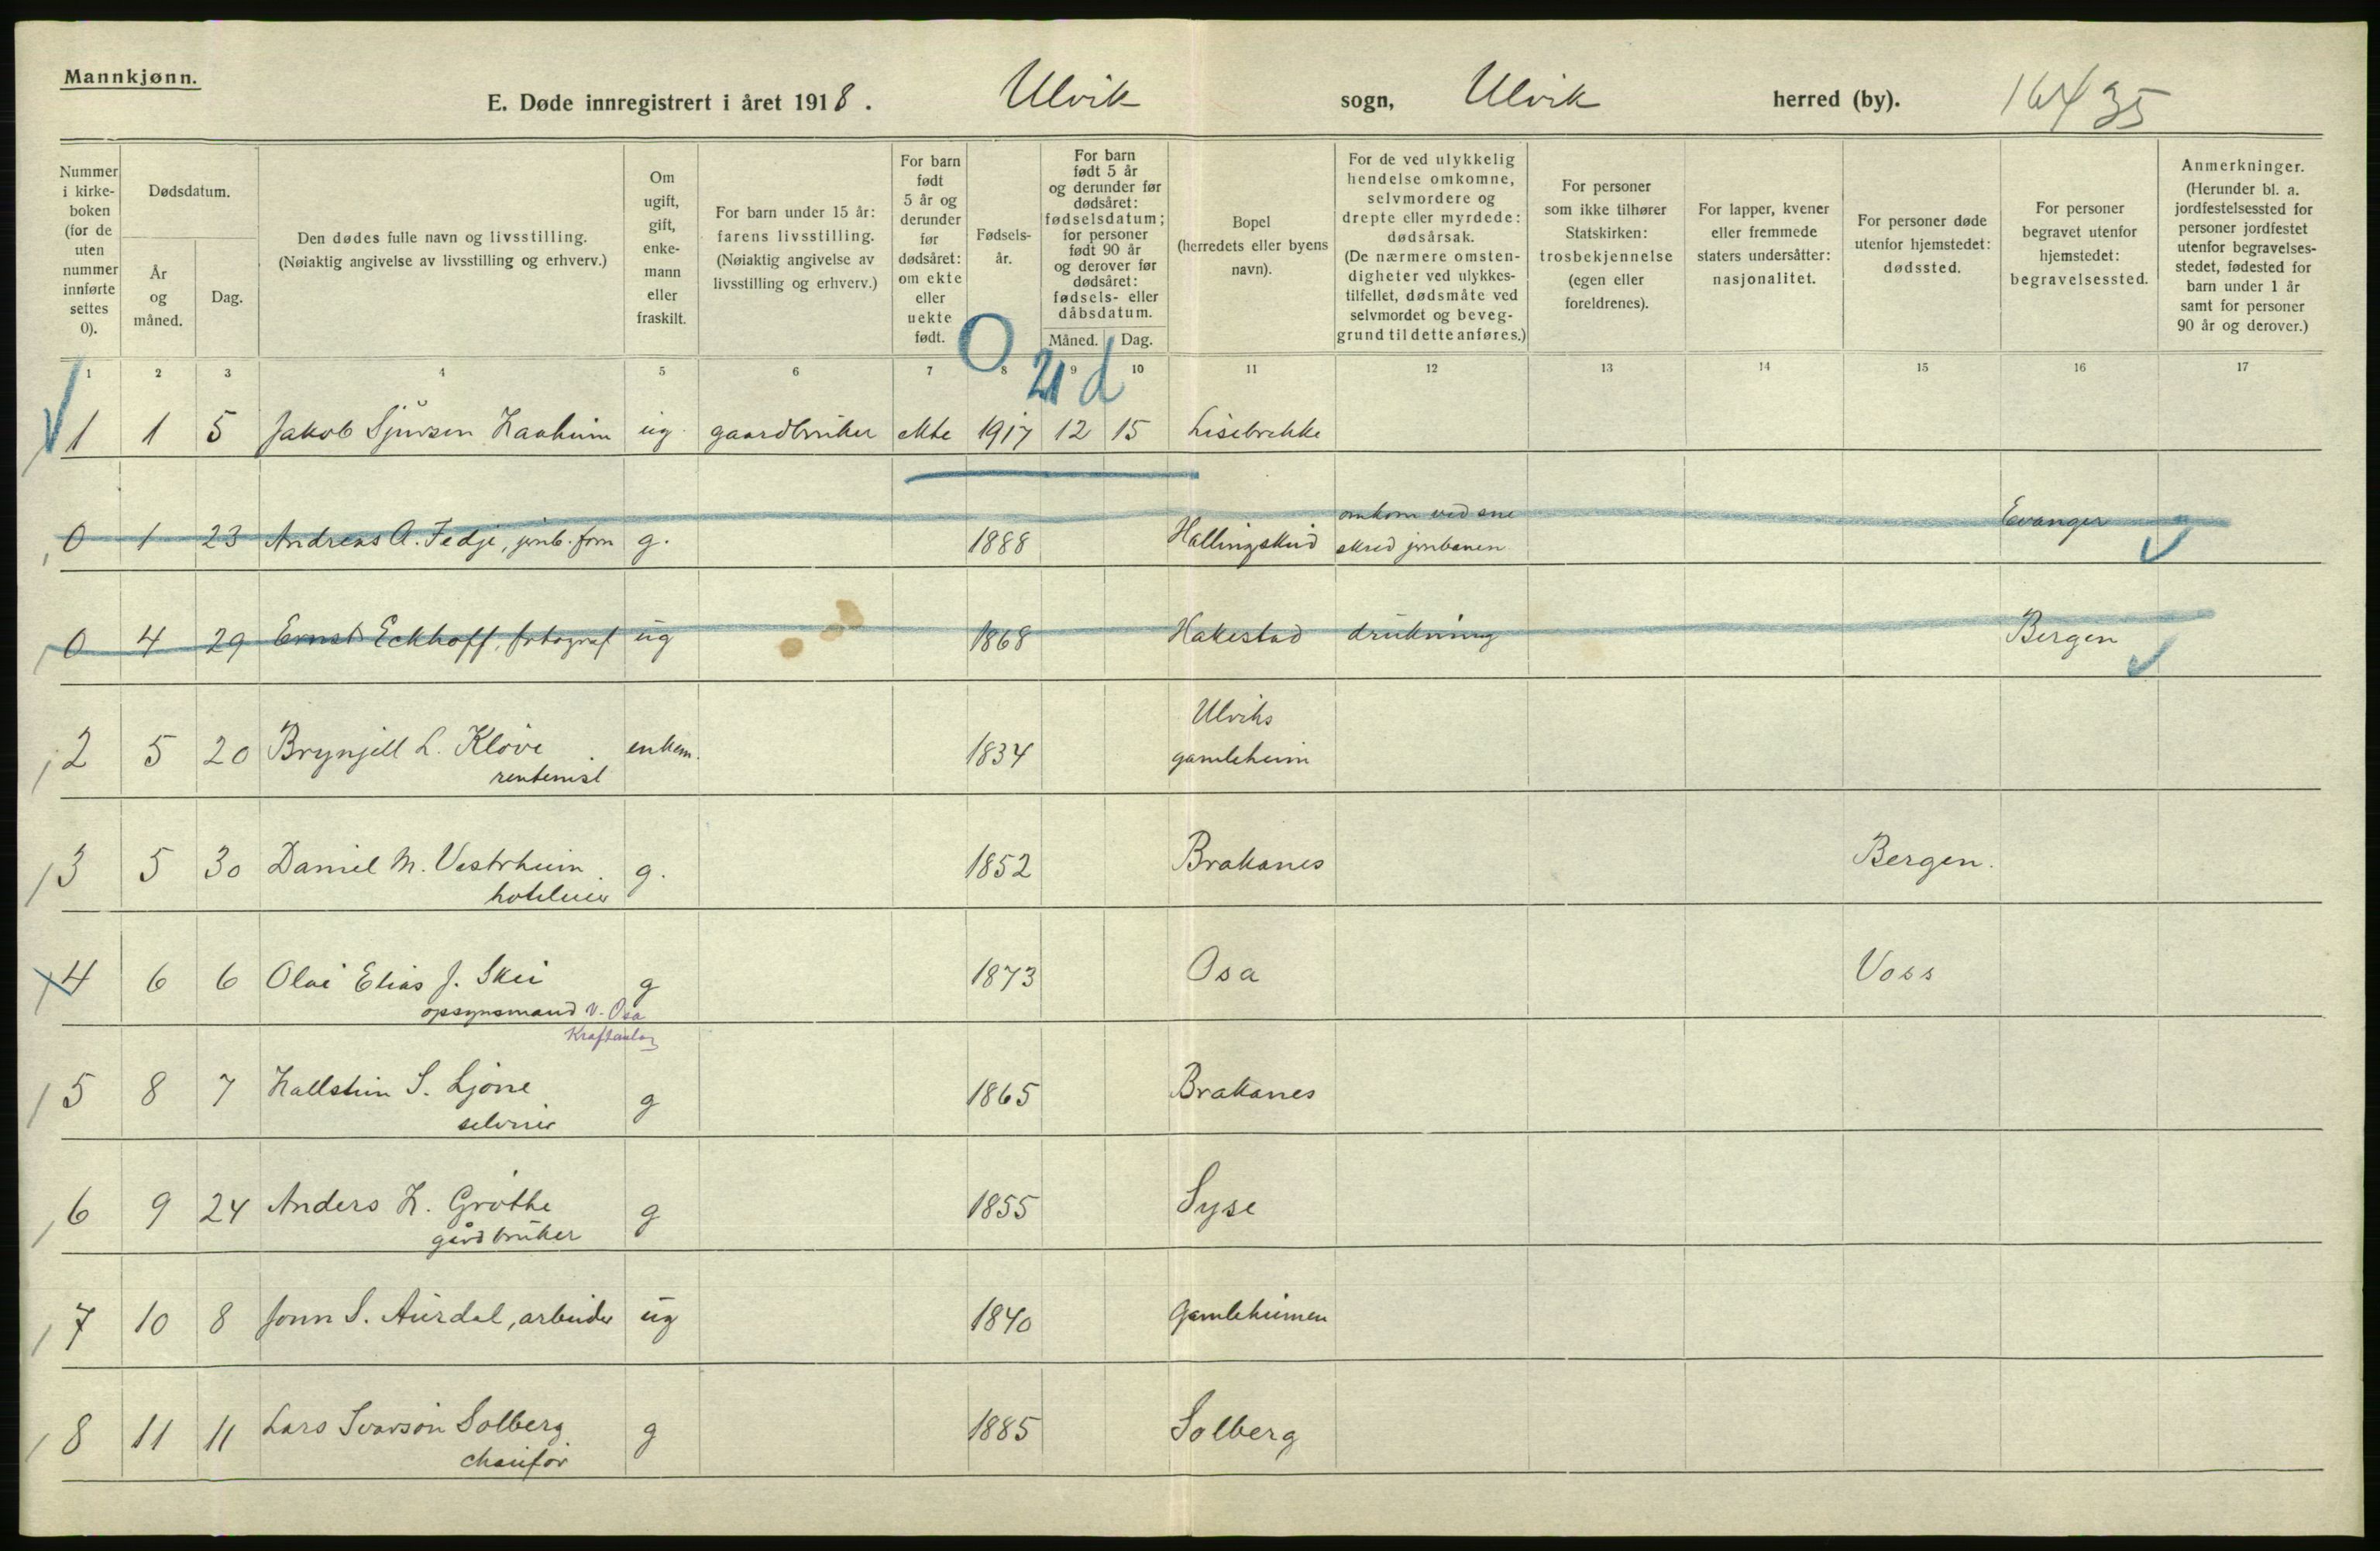 Mannkjønn.
E. Døde innregistrert i året 1918. Ulvik sogn, Ulvik herred (by). 16435
Nummer i kirke-boken (for de uten nummer innførte settes 0).
Dødsdatum.
År og måned.
Dag.
Den dødes fulle navn og livsstilling.
(Nøiaktig angivelse av livsstilling og erhverv.)
Om ugift, gift, enke-mann eller fraskilt.
For barn under 15 år: farens livsstilling.
(Nøiaktig angivelse av livsstilling og erhverv.)
For barn født 5 år og derunder før dødsåret: om ekte eller uekte født.
Fødsels-år.
For barn født 5 år og derunder før dødsåret: fødselsdatum; for personer født 90 år og derover før dødsåret: fødsels- eller dåbsdatum.
Måned. Dag.
Bopel
(herredets eller byens navn).
For de ved ulykkelig hendelse omkomne, selvmordere og drepte eller myrdede: dødsårsak.
(De nærmere omsten-digheter ved ulykkes-tilfellet, dødsmåte ved selvmordet og beveg-grund til dette anføres.)
For personer som ikke tilhører Statskirken: trosbekjennelse (egen eller foreldrenes).
For lapper, kvener eller fremmede staters undersåtter: nasjonalitet.
For personer døde utenfor hjemstedet: dødssted.
For personer begravet utenfor hjemstedet: begravelsessted.
Anmerkninger.
(Herunder bl. a. jordfestelsessted for personer jordfestet utenfor begravelses-stedet, fødested for barn under 1 år samt for personer 90 år og derover.)
1 2 3 4 5 6 7 8 9 10 11 12 13 14 15 16 17
0 21 d
1 1 5 Jakob Sjursen Haaheim ug. gaardbruker ekte 1917 12 15 Lisebrekke
0 1 23 Andreas A. Fedje, jernb. form g. 1888 Hallingskeid omkom ved sne
skred jernbanen Evanger
0 4 29 Ernst Eckhoff, fotograf ug 1868 Hakestad drukning Bergen
2 5 20 Brynjell L. Kløve enkem. 1834 Ulviks
rentenist gamleheim
3 5 30 Daniel M. Vestrheim g. 1852 Brakanes Bergen.
hoteleier
4 6 6 Olai Elias J. Skei g 1873 Osa Voss
opsynsmand v. Osa
Kraftanlæg
5 8 7 Hallstein S. Ljone g 1865 Brakanes
selveier
6 9 24 Anders H. Grøthe g 1855 Syse
gårdbruker
7 10 8 Jonn S. Aurdal, arbeider ug 1840 Gamleheimen
8 11 11 Lars Ivarson Solberg g 1885 Solberg
chaufør